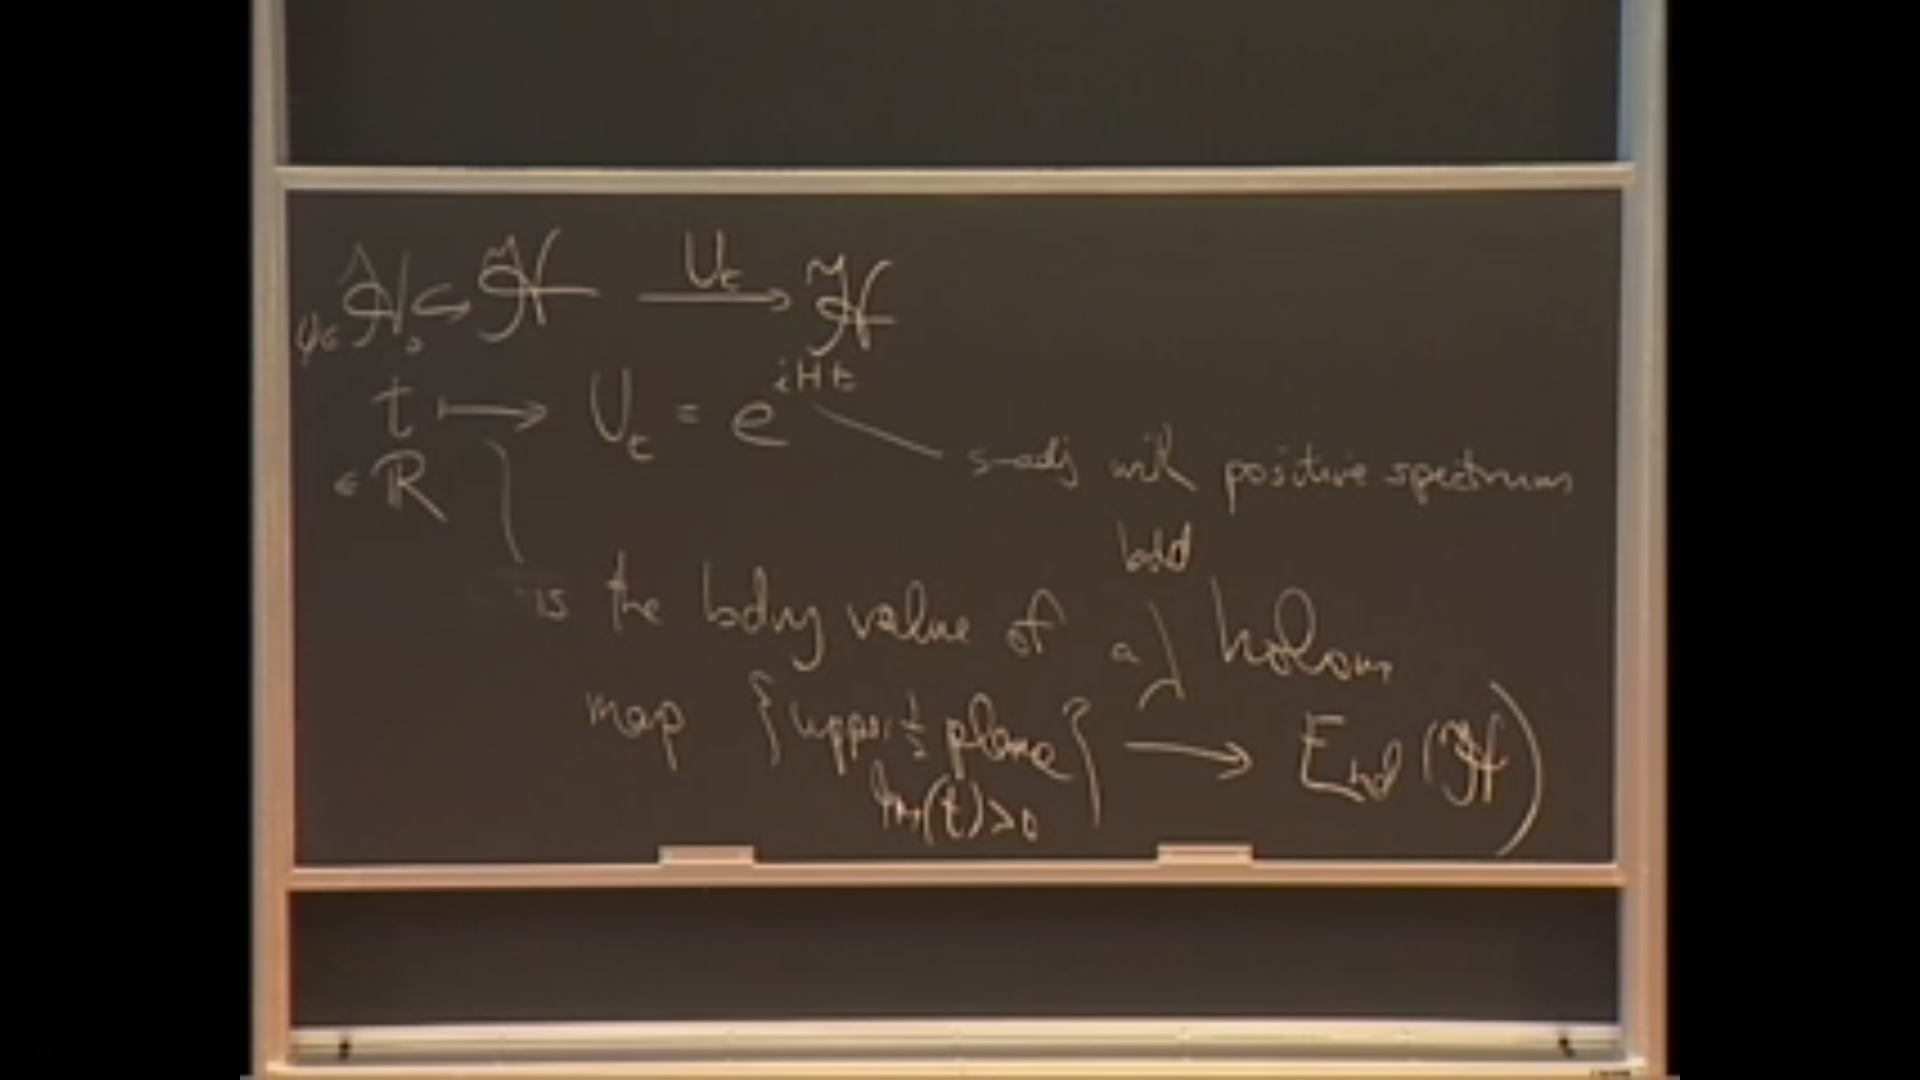 ψ∈ ℋ₀ ⊂ ℋ —U_t→ ℋ
t ⟼ U_t = e^{iHt}
∈ ℝ
s-adj with positive spectrum
bdd
is the bdry value of a holom
map {upper ½ plane} → End(ℋ))
Im(t)>0